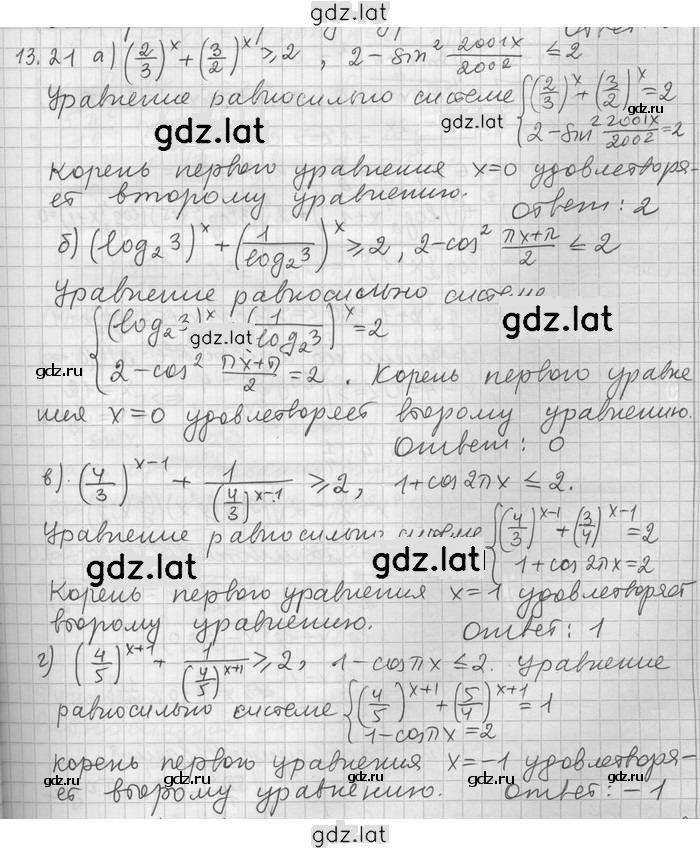 gdz.lat
13.21 а) (2/3)^x + (3/2)^x ≥ 2 , 2 - sin² 2001x/2002 ≤ 2
Уравнение равносильно системе { (2/3)^x + (3/2)^x = 2
gdz.lat gdz.lat { 2 - sin² 2001x/2002 = 2
Корень первого уравнения x=0 удовлетворя-
ет второму уравнению. Ответ: 2
б) (log₂3)^x + (1/log₂3)^x ≥ 2, 2-cos² πx+π/2 ≤ 2
Уравнение равносильно
{ (log₂3)^x (1/log₂3)^x = 2 gdz.lat
gdz.lat gdz.lat
{ 2 - cos² πx+π/2 = 2 . Корень первого уравне
ния x=0 удовлетворяет второму уравнению.
Ответ: 0
в). (4/3)^x-1 + 1/(4/3)^x-1 ≥ 2, 1+cos2πx ≤ 2.
Уравнение равносильно { (4/3)^x-1 + (3/4)^x-1 = 2
gdz.lat gdz.lat { 1+cos2πx=2
Корень первого уравнения x=1 удовлетворяет
второму уравнению. Ответ: 1
г) (4/5)^x+1 + 1/(4/5)^x+1 ≥ 2, 1-cosπx ≤ 2. Уравнение
равносильно системе { (4/5)^x+1 + (5/4)^x+1 = 1
{ 1-cosπx=2
корень первого уравнения x=-1 удовлетворя-
gdz.lat gdz.lat
ет второму уравнению. Ответ: -1
gdz.lat